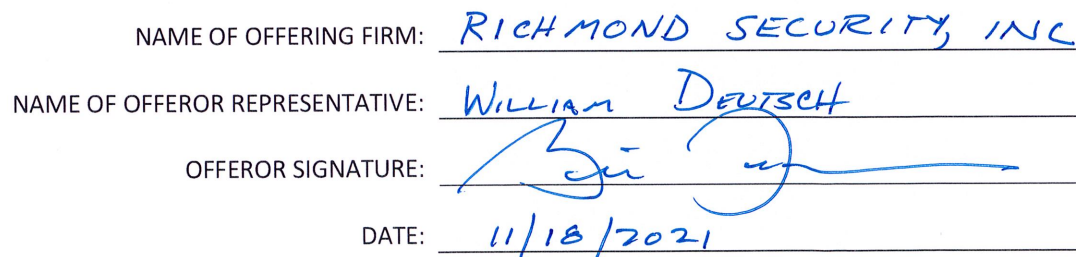 NAME OF OFFERING FIRM: RICHMOND SECURITY, INC
NAME OF OFFEROR REPRESENTATIVE: WILLIAM DEUTSCH
OFFEROR SIGNATURE:
DATE: 11/18/2021